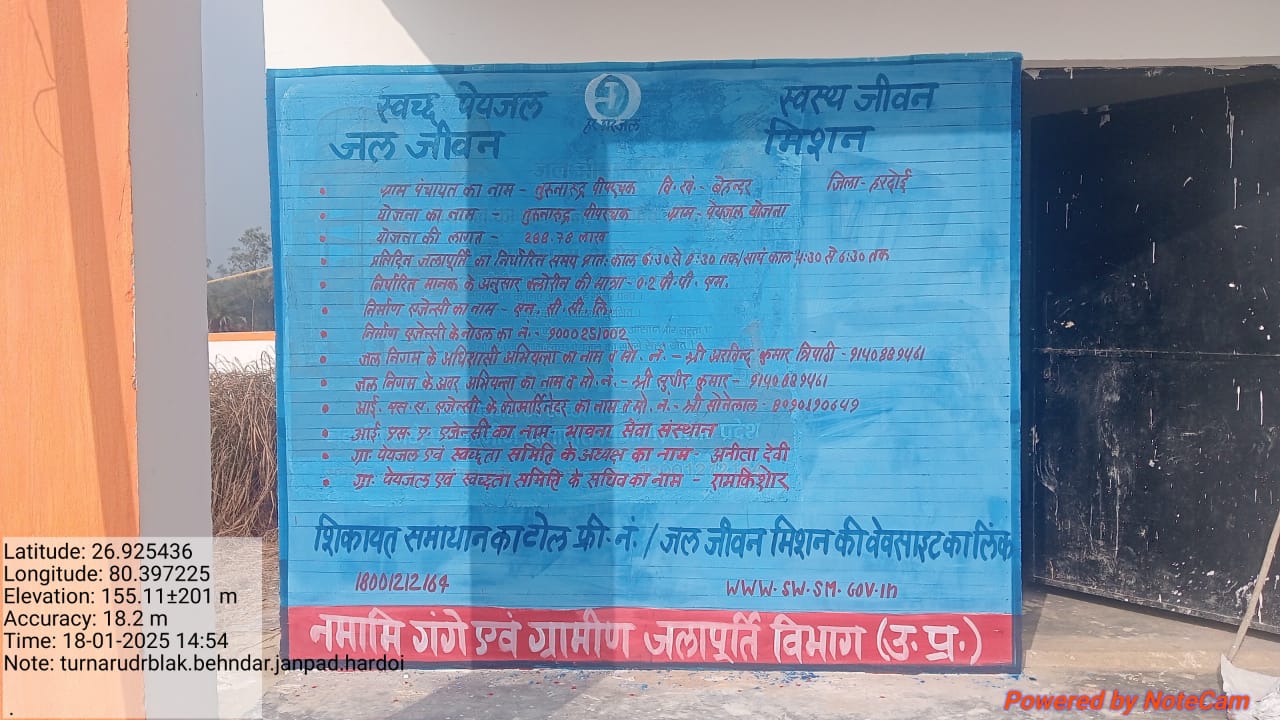 स्वच्छ पेयजल
स्वस्थ जीवन
हर घर जल
जल जीवन
मिशन
ग्राम पंचायत का नाम - तुरुनारुद्र पीपरचक वि॰ खं॰- बेहन्दर जिला- हरदोई
योजना का नाम - तुरुनारुद्र पीपरचक ग्राम- पेयजल योजना
योजना की लागत - 288.78 लाख
प्रतिदिन जलापूर्ति का निर्धारित समय प्रातः काल 6:30 से 8:30 तक/सायं काल 4:30 से 6:30 तक
निर्धारित मानक के अनुसार क्लोरीन की मात्रा - 0.2 पी॰ पी॰ एम॰
निर्माण एजेन्सी का नाम - एन॰ सी॰ सी॰ लि॰
निर्माण एजेन्सी के नोडल का नं॰ - 9000251002
जल निगम के अधिसासी अभियन्ता का नाम व मो॰ नं॰ - श्री अरविन्द कुमार त्रिपाठी - 9140889461
जल निगम के अवर अभियन्ता का नाम व मो॰ नं॰ - श्री सुधीर कुमार - 9140889461
आई॰ एस॰ ए॰ एजेन्सी के कोआर्डिनेटर का नाम व मो॰ नं॰ - श्री सोनेलाल -
आई॰ एस॰ ए॰ एजेन्सी का नाम- भावना सेवा संस्थान
ग्रा॰ पेयजल एवं स्वच्छता समिति के अध्यक्ष का नाम - अनीता देवी
ग्रा॰ पेयजल एवं स्वच्छता समिति के सचिव का नाम - रामकिशोर
शिकायत समाधान का टोल फ्री॰ नं॰ / जल जीवन मिशन की वेवसाइट का लिंक
18001212164
WWW.SW.SM.GOV.in
नमामि गंगे एवं ग्रामीण जलापूर्ति विभाग (उ॰ प्र॰)
Latitude: 26.925436
Longitude: 80.397225
Elevation: 155.11±201 m
Accuracy: 18.2 m
Time: 18-01-2025 14:54
Note: turnarudrblak.behndar.janpad.hardoi
Powered by NoteCam